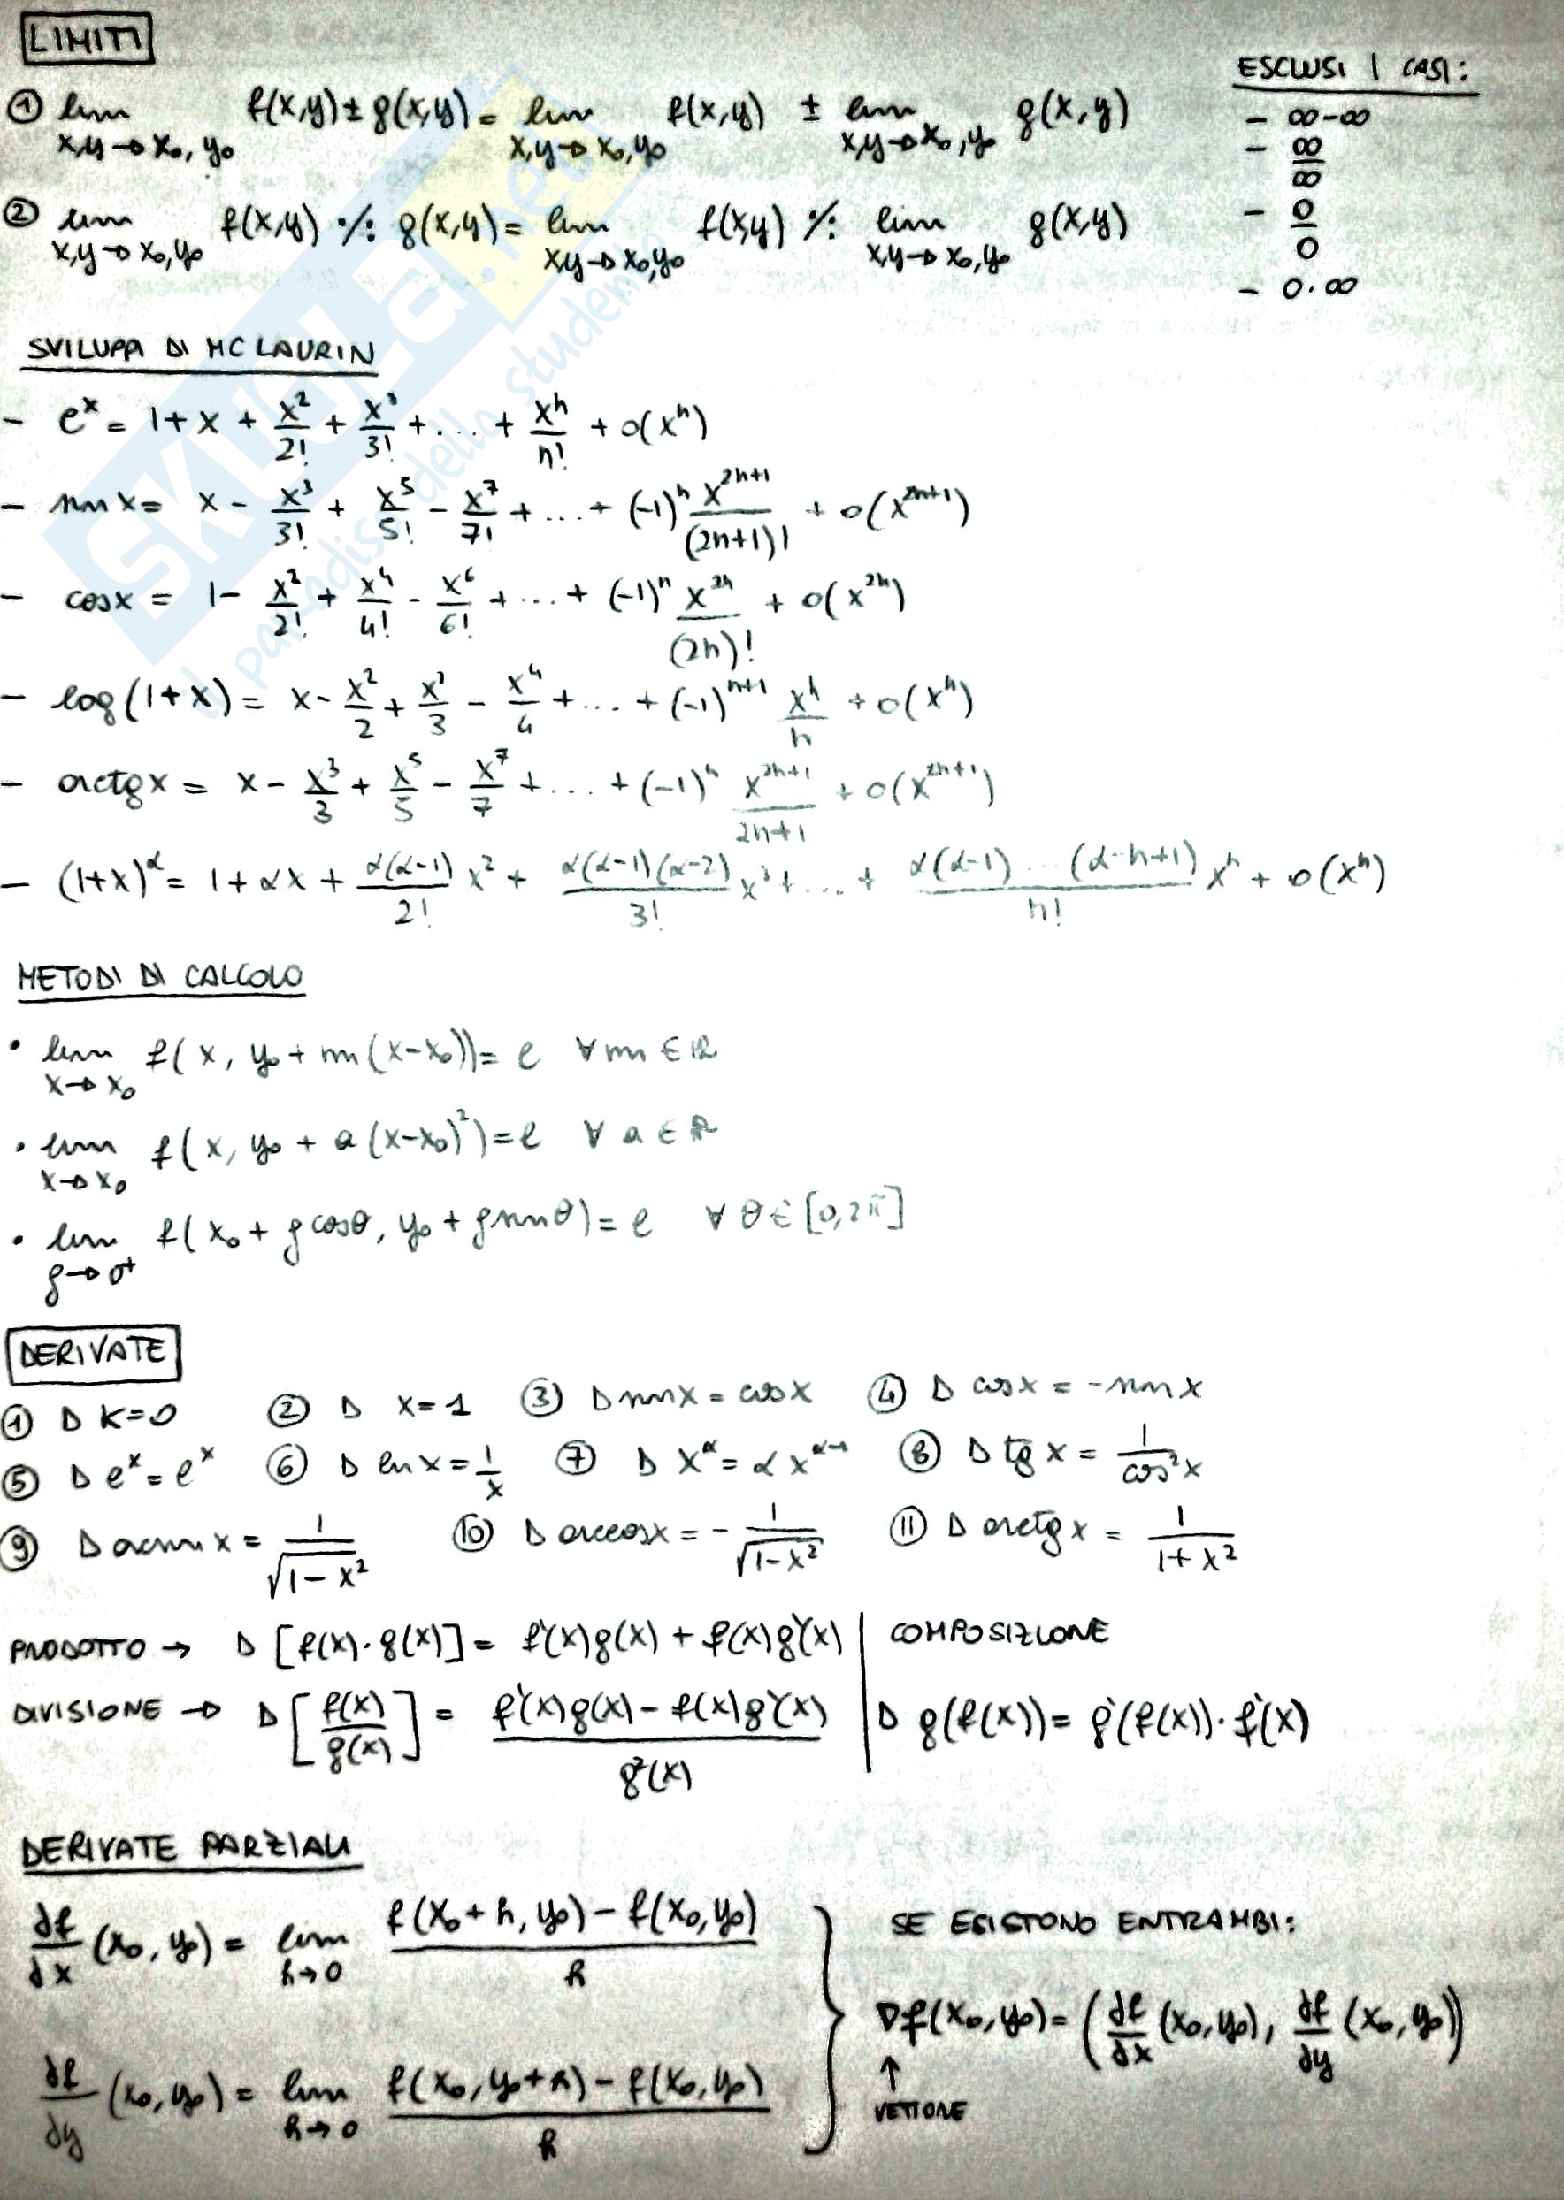 LIMITI
ESCLUSI I CASI:
① lim x,y→x₀,y₀ f(x,y) ± g(x,y) = lim x,y→x₀,y₀ f(x,y) ± lim x,y→x₀,y₀ g(x,y)
- ∞-∞
- ∞/∞
② lim x,y→x₀,y₀ f(x,y) ·/: g(x,y) = lim x,y→x₀,y₀ f(x,y) ·/: lim x,y→x₀,y₀ g(x,y)
- 0/0
- 0·∞
SVILUPPI DI MC LAURIN
- eˣ = 1 + x + x²/2! + x³/3! + ... + xⁿ/n! + o(xⁿ)
- sen x = x - x³/3! + x⁵/5! - x⁷/7! + ... + (-1)ⁿ x²ⁿ⁺¹/(2n+1)! + o(x²ⁿ⁺¹)
- cosx = 1 - x²/2! + x⁴/4! - x⁶/6! + ... + (-1)ⁿ x²ⁿ/(2n)! + o(x²ⁿ)
- log(1+x) = x - x²/2 + x³/3 - x⁴/4 + ... + (-1)ⁿ⁺¹ xⁿ/n + o(xⁿ)
- arctg x = x - x³/3 + x⁵/5 - x⁷/7 + ... + (-1)ⁿ x²ⁿ⁺¹/2n+1 + o(x²ⁿ⁺¹)
- (1+x)^α = 1 + αx + α(α-1)/2! x² + α(α-1)(α-2)/3! x³ + ... + α(α-1)...(α-n+1)/n! xⁿ + o(xⁿ)
METODI DI CALCOLO
• lim x→x₀ f(x, y₀ + m(x-x₀)) = l ∀ m ∈ ℝ
• lim x→x₀ f(x, y₀ + a(x-x₀)²) = l ∀ a ∈ ℝ
• lim ρ→0⁺ f(x₀ + ρcosθ, y₀ + ρsenθ) = l ∀ θ ∈ [0,2π]
DERIVATE
① D K=0 ② D x=1 ③ D sen x = cos x ④ D cos x = -sen x
⑤ D eˣ = eˣ ⑥ D ln x = 1/x ⑦ D x^α = α x^(α-1) ⑧ D tg x = 1/cos²x
⑨ D arcsen x = 1/√(1-x²) ⑩ D arccosx = - 1/√(1-x²) ⑪ D arctg x = 1/(1+x²)
PRODOTTO → D [f(x)·g(x)] = f'(x)g(x) + f(x)g'(x) | COMPOSIZIONE
DIVISIONE → D [f(x)/g(x)] = f'(x)g(x) - f(x)g'(x) / g²(x) | D g(f(x)) = g'(f(x))·f'(x)
DERIVATE PARZIALI
∂f/∂x (x₀,y₀) = lim h→0 f(x₀+h, y₀) - f(x₀,y₀) / h
SE ESISTONO ENTRAMBI:
∇f(x₀,y₀) = (∂f/∂x (x₀,y₀), ∂f/∂y (x₀,y₀))
↑
VETTORE
∂f/∂y (x₀,y₀) = lim h→0 f(x₀, y₀+h) - f(x₀,y₀) / h
SKUOLA.net
Il paradiso dello studente